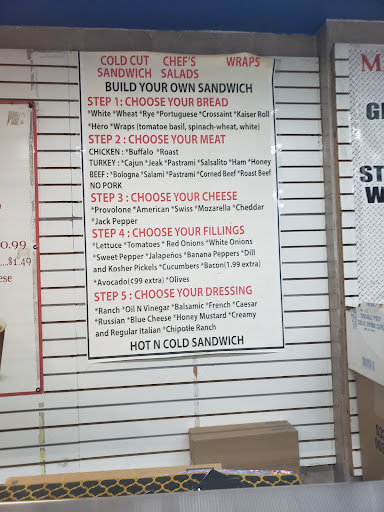 COLD CUT CHEF'S WRAPS
SANDWICH SALADS
BUILD YOUR OWN SANDWICH
STEP 1: CHOOSE YOUR BREAD
*White *Wheat *Rye *Portuguese *Crossaint *Kaiser Roll
*Hero *Wraps (tomatoe basil, spinach-wheat, white)
STEP 2: CHOOSE YOUR MEAT
CHICKEN : *Buffalo *Roast
TURKEY : *Cajun *Jeak *Pastrami *Salsalito *Ham *Honey
BEEF : *Bologna *Salami *Pastrami *Corned Beef *Roast Beef
NO PORK
STEP 3 : CHOOSE YOUR CHEESE
*Provolone *American *Swiss *Mozarella *Cheddar
*Jack Pepper
STEP 4 : CHOOSE YOUR FILLINGS
*Lettuce *Tomatoes * Red Onions *White Onions
*Sweet Pepper *Jalapeños *Banana Peppers *Dill
and Kosher Pickels *Cucumbers *Bacon(1.99 extra)
*Avocado(¢99 extra) *Olives
STEP 5 : CHOOSE YOUR DRESSING
*Ranch *Oil N Vinegar *Balsamic *French *Caesar
*Russian *Blue Cheese *Honey Mustard *Creamy
and Regular Italian *Chipotle Ranch
HOT N COLD SANDWICH
0.99
...$1.49
ese
M
GI
ST
W